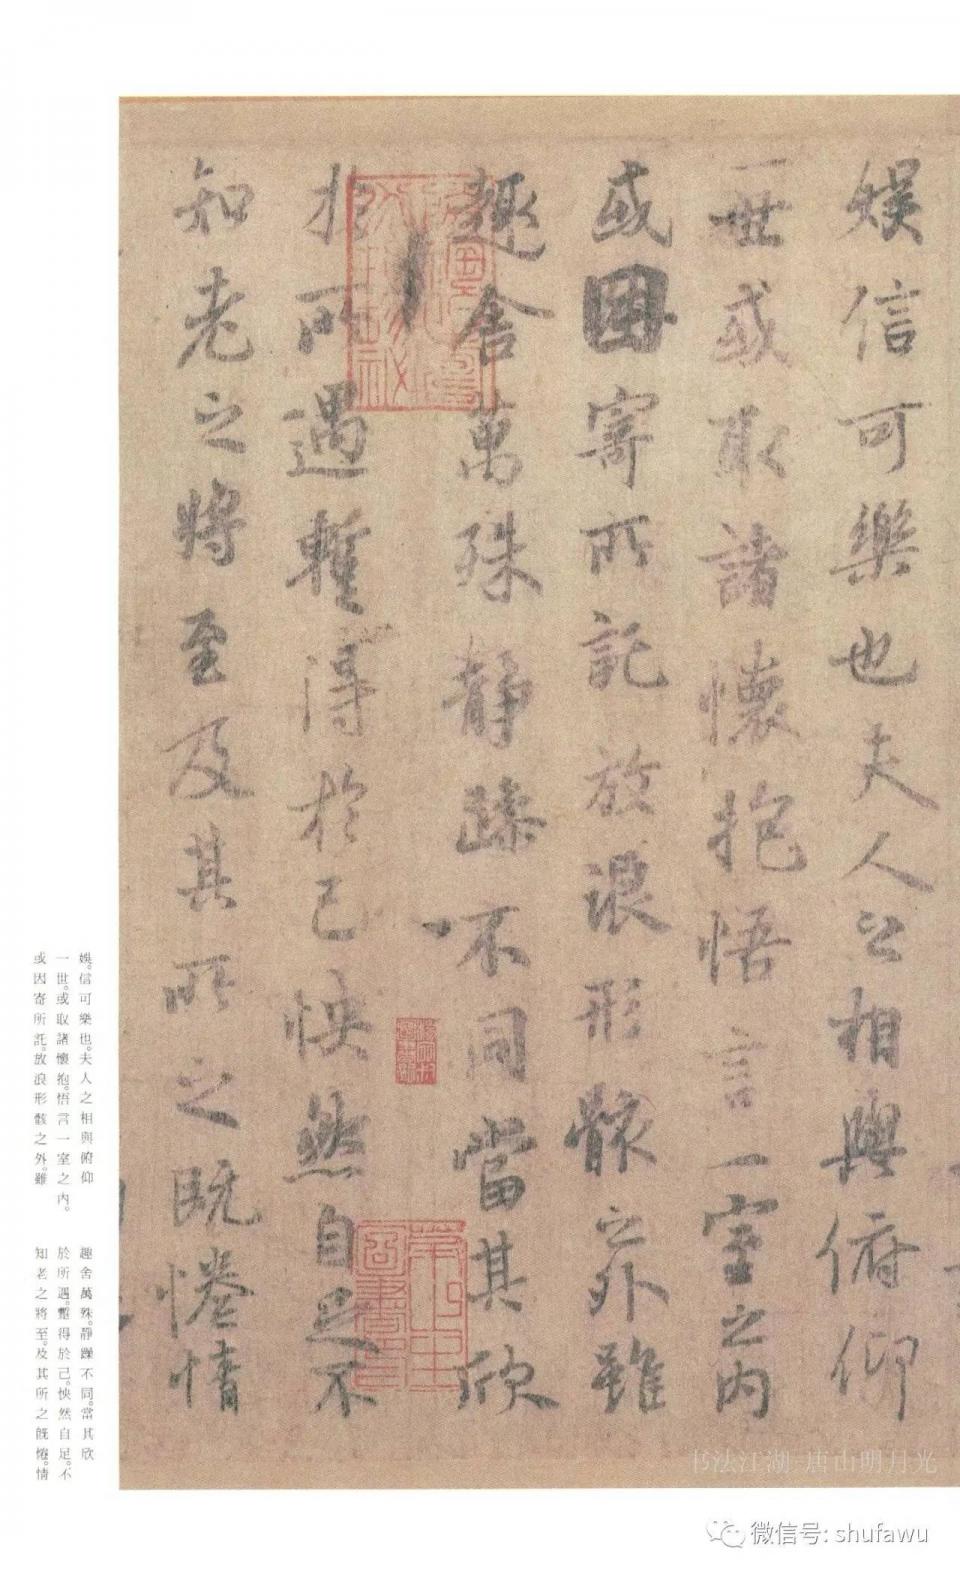 娛信可樂也夫人之相與俯仰
一世或取諸懷抱悟言一室之內
或因寄所託放浪形骸之外雖
趣舍萬殊靜躁不同當其欣
於所遇暫得於己怏然自足不
知老之將至及其所之既惓情
娛。信可樂也。夫人之相與俯仰
一世。或取諸懷抱。悟言一室之內。
或因寄所託。放浪形骸之外。雖
趣舍萬殊。靜躁不同。當其欣
於所遇。蹔得於己。怏然自足。不
知老之將至。及其所之既惓。情
书法江湖 唐山明月光
微信号: shufawu